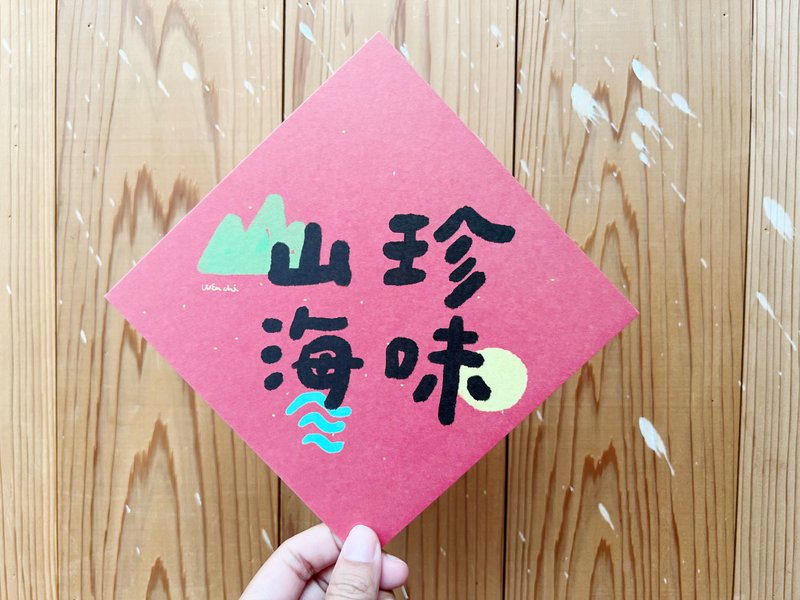 山珍
海味
Wen chi